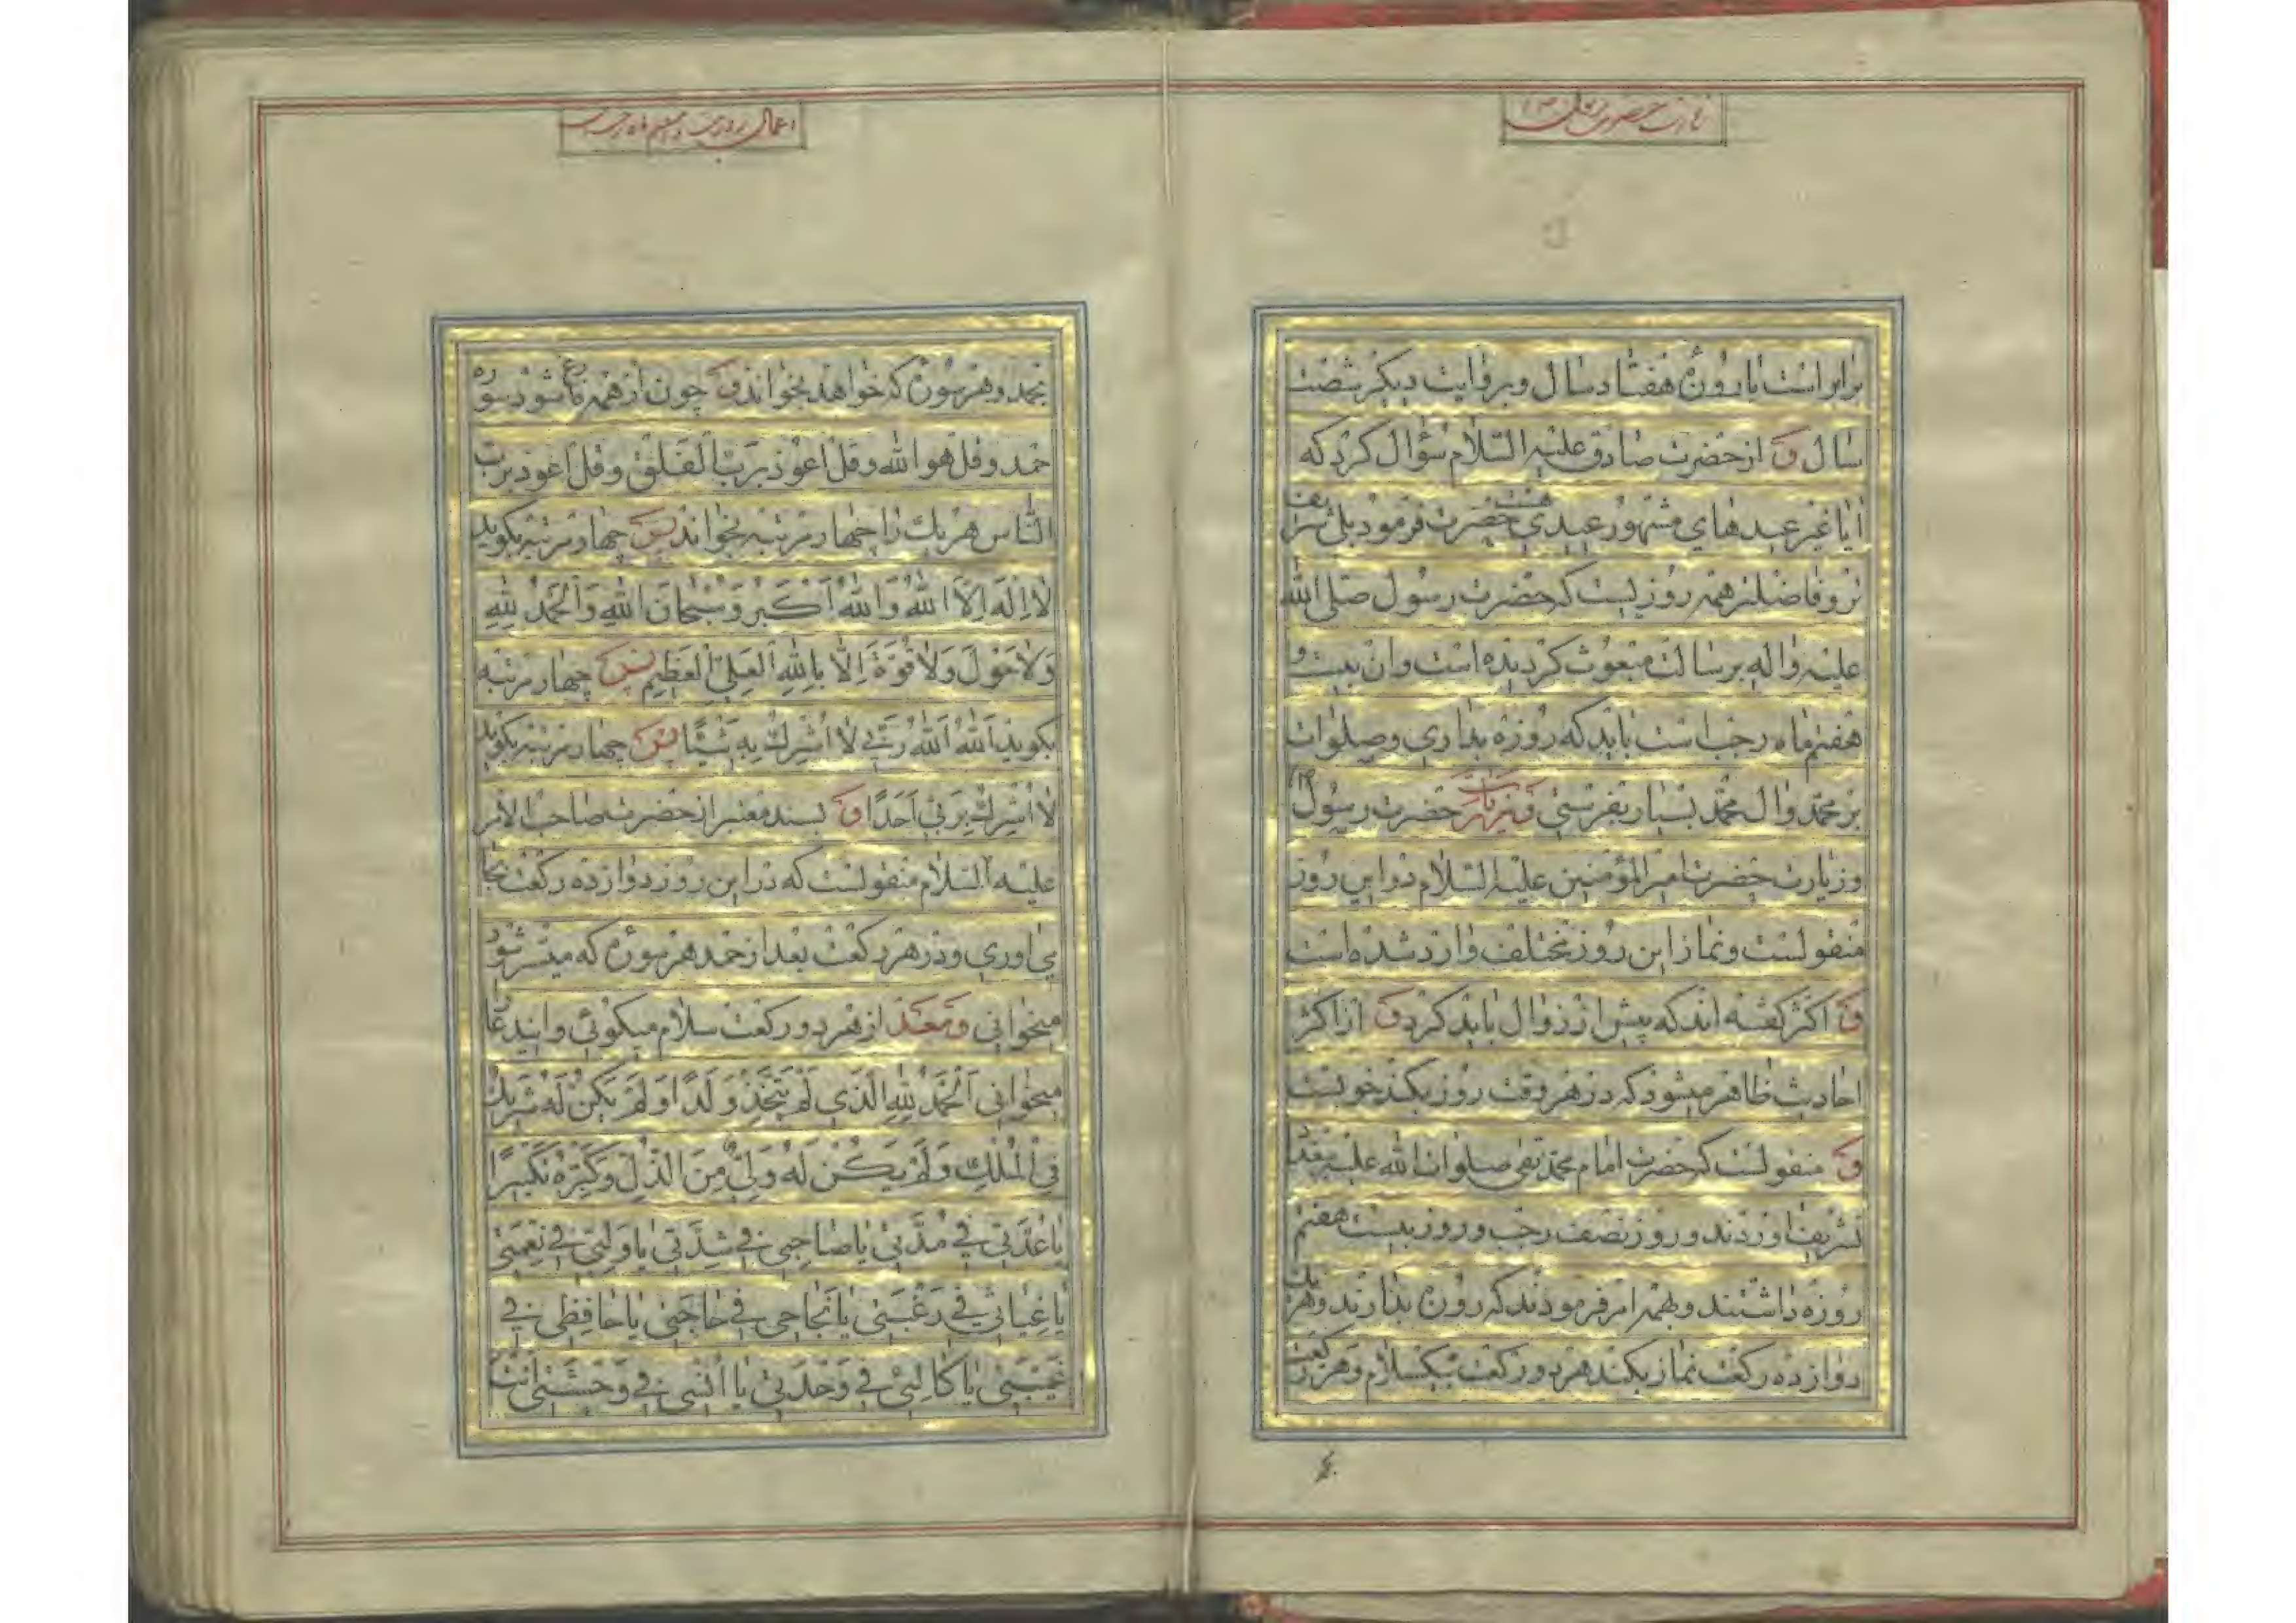 برابر است با روزهٔ هفتاد سال و بروایت دیگر شصت
سال و از حضرت صادق علیه السلام سؤال کرد که
ایا غیر عیدهای مشهور عیدی هست حضرت فرمود بلی شریف
تر و فاضلتر همه روزیست که حضرت رسول صلی الله
علیه و اله برسالت مبعوث گردیده است و ان بیست و
هفتم ماه رجب است باید که روزه بداری و صلوات
بر محمد و ال محمد بسیار بفرستی و زیارت حضرت رسول
و زیارت حضرت امیر المؤمنین علیه السلام در این روز
منقولست و نماز این روز مختلف وارد شده است
و اکثر گفته اند که پیش از زوال باید کرد و از اکثر
احادیث ظاهر میشود که در هر وقت روز بکند خوبست
و منقولست که حضرت امام محمد تقی صلوات الله علیه ببغداد
تشریف اوردند و روز نصف رجب و روز بیست هفتم
روزه داشتند و بهمه امر فرمودند که روزه بدارند و هر یک
دوازده رکعت نماز بکنند هر دو رکعت بیکسلام و هر رکعت
اعمال روز بیست و هفتم ماه رجب
بحمد و هر سوره که خواهد بخواند و چون از همه فارغ شود سوره
حمد و قل هو الله و قل اعوذ برب الفلق و قل اعوذ برب
الناس هر یک را چهار مرتبه بخواند پس چهار مرتبه بگوید
لَا اِلٰهَ اِلَّا اللّٰهُ وَاللّٰهُ اَكْبَرُ وَ سُبْحَانَ اللّٰهِ وَالْحَمْدُ لِلّٰهِ
وَلَا حَوْلَ وَلَا قُوَّةَ اِلَّا بِاللّٰهِ الْعَلِیِّ الْعَظِیمِ پس چهار مرتبه
بگوید اَللّٰهُ اَللّٰهُ رَبِّی لَا اُشْرِكُ بِهِ شَیْئًا پس چهار مرتبه بگوید
لَا اُشْرِكُ بِرَبِّی اَحَدًا و بسند معتبر از حضرت صاحب الامر
علیه السلام منقولست که در این روز دوازده رکعت بجا
می اوری و در هر رکعت بعد از حمد هر سوره که میسر شود
میخوانی و بعد از هر دو رکعت سلام میگوئی و ایندعا
میخوانی اَلْحَمْدُ لِلّٰهِ الَّذِی لَمْ یَتَّخِذْ وَلَدًا وَ لَمْ یَكُنْ لَهُ شَرِیكٌ
فِی الْمُلْكِ وَ لَمْ یَكُنْ لَهُ وَلِیٌّ مِنَ الذُّلِّ وَ كَبِّرْهُ تَكْبِیرًا
یَا عُدَّتِی فِی مُدَّتِی یَا صَاحِبِی فِی شِدَّتِی یَا وَلِیِّی فِی نِعْمَتِی
یَا غِیَاثِی فِی رَغْبَتِی یَا نَجَاحِی فِی حَاجَتِی یَا حَافِظِی فِی
غَیْبَتِی یَا كَالِئِی فِی وَحْدَتِی یَا اُنْسِی فِی وَحْشَتِی اَنْتَ